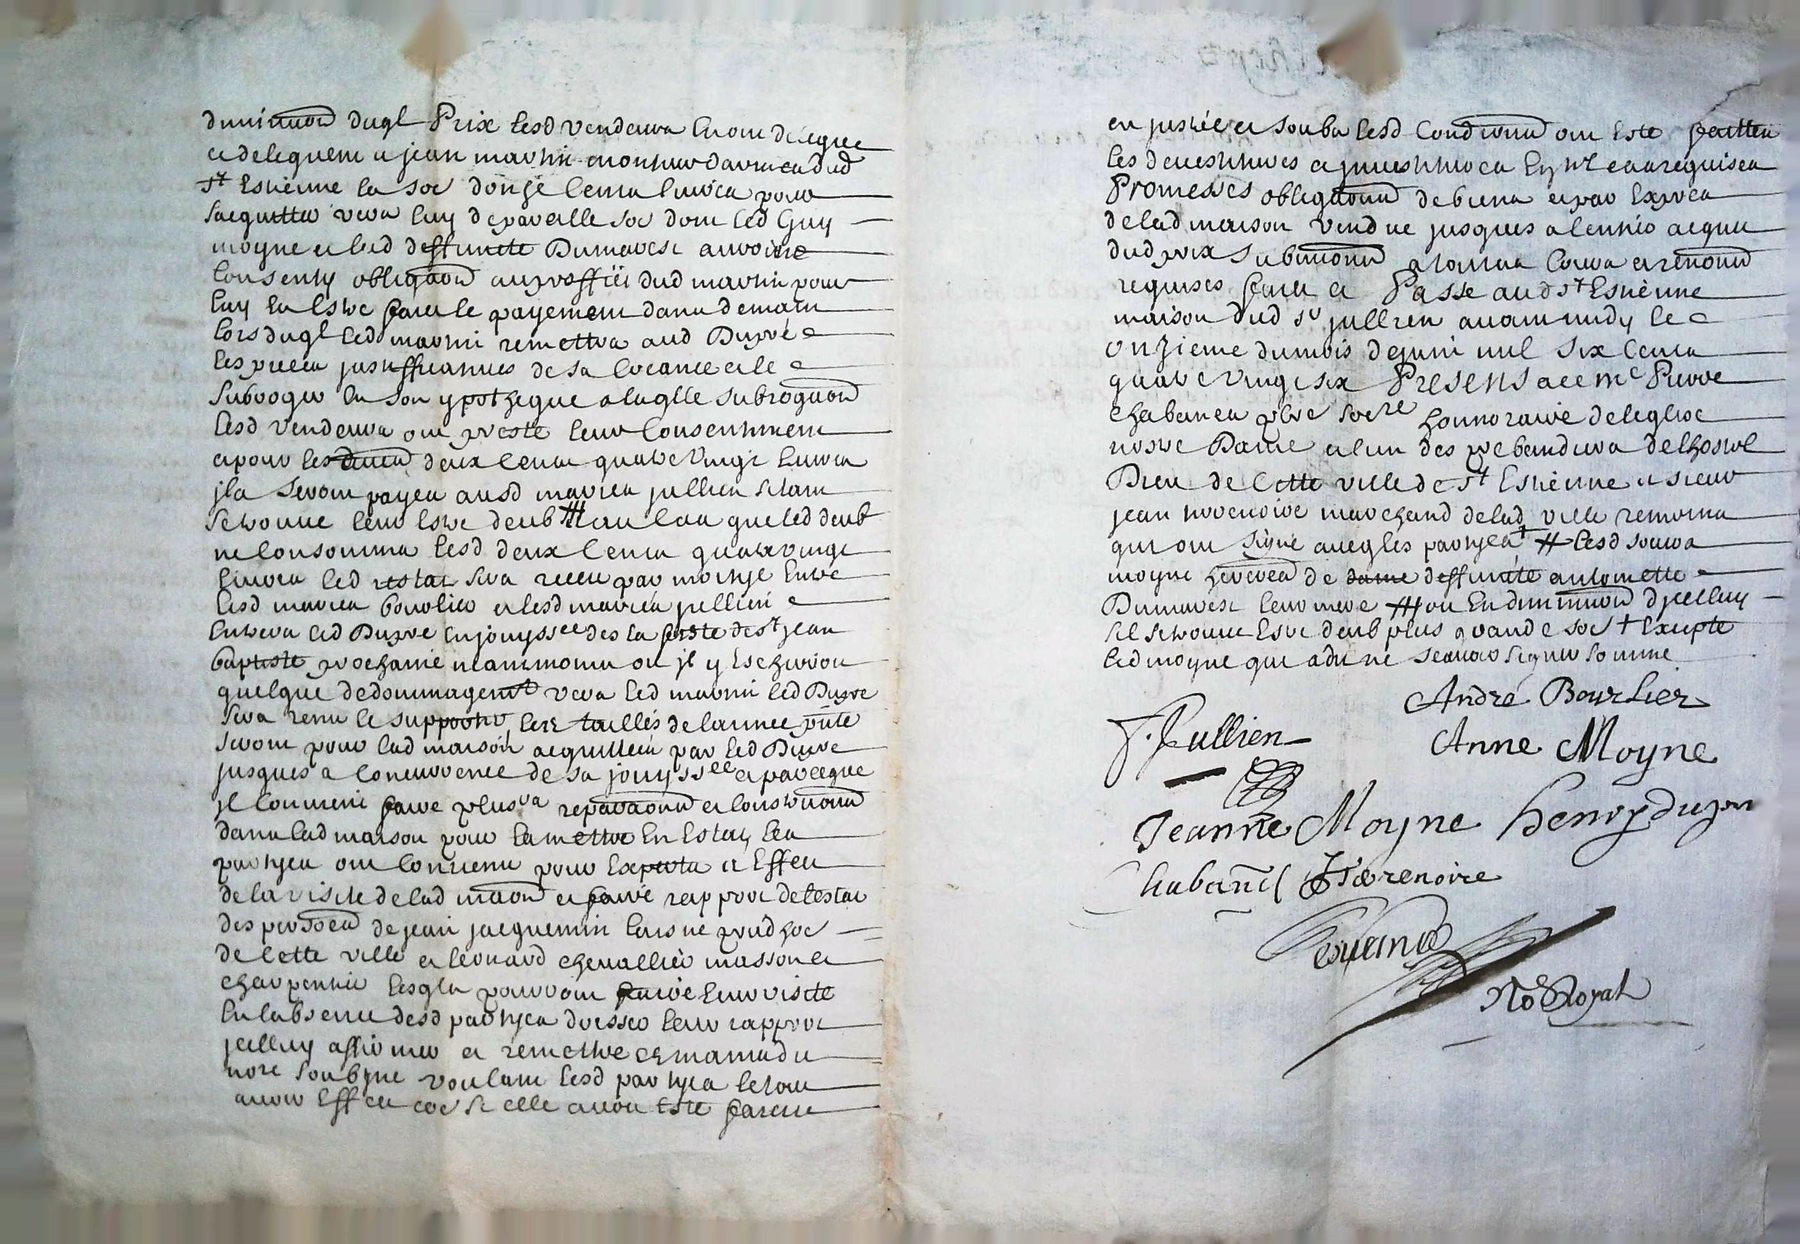 diminuon duql Prix lesd vendeurs en ont delegue
et deleguent a jean martin monteur darmes dud
st Estienne la soe donze cents livres pour
sacquitter vers luy de pareille soe dont led Guy
moyne et lad deffuncte Dumarest auroient
consenty obligaon au proffict dud martin pour
luy en estre faict le payement dans demain
lors duql led martin remettra aud Dupré
les pieces justifficatives de sa creance et le
subroger en son ypotheque a laqlle subrogaon
lesd vendeurs ont preste leur consentement
et pour les deux cents quatre vingt livres
jls seront payes ausd maries jullien sestant
se trouve leur estre deub # au cas que led deub
ne consomma lesd deux cents quatre vingt
livres led restat sera receu par moitye entre
lesd maries bourlier et lesd maries jullien
entrera led Dupre en jouyssce des la feste de st jean
baptiste prochaine neantmoins ou jl y escherroit
quelque dedommagemt vers led martin led Dupre
sera tenu le supporter les tailles de lannee pnte
seront pour lad maison acquittees par led Dupre
jusques a concurrence de sa jouyssce et parceque
jl convient faire plusrs reparaons et construons
dans lad maison pour la mettre en estat, les
partyes ont convenu pour experts et effect
de la visite de lad maon et faire rapport de lestat
des personnes de jean jacquemin laisne prudhoe
de cette ville et leonard chevallier masson et
charpentier lesqls pourront faire leur visite
en labsence desd partyes dresser leur rapport
jcelluy affirmer et remettre es mains du
nore soubsne voulant lesd partyes le tout
avoir effect coe si elle avoit este faicte
en justice et soubs lesd condions ont este faittes
les devestitures et jnvestitures en tel cas requises
Promesses obligaons de biens et par expres
de lad maison vendue jusques a lentier acquit
dud prix submions a toutes cours et renons
requises faict et Passe aud st Estienne
maison dud sr jullien avant midy le
onzieme du mois de juin mil six cents
quatre vingt six Presens a ce me Pierre
chabanes pbre soere honnoraire de leglise
nostre Dame et lun des prebandiers de lhostel
Dieu de cette ville de st Estienne et sieur
jean terrenoire marchand de lad ville temoins
qui ont signe avec les partyes # lesd sœurs
moyne heritieres de dame deffuncte anthoinette
Dumarest leur mere # ou en diminuon djcelluy
sil se trouve estre deub plus grande soe † Excepte
led moyne qui a dit ne scavoir signer somme
André Bourlier
J. Jullien Anne Moyne
Jeanne Moyne henry dupre
Chabanes J Terrenoire
No Royal